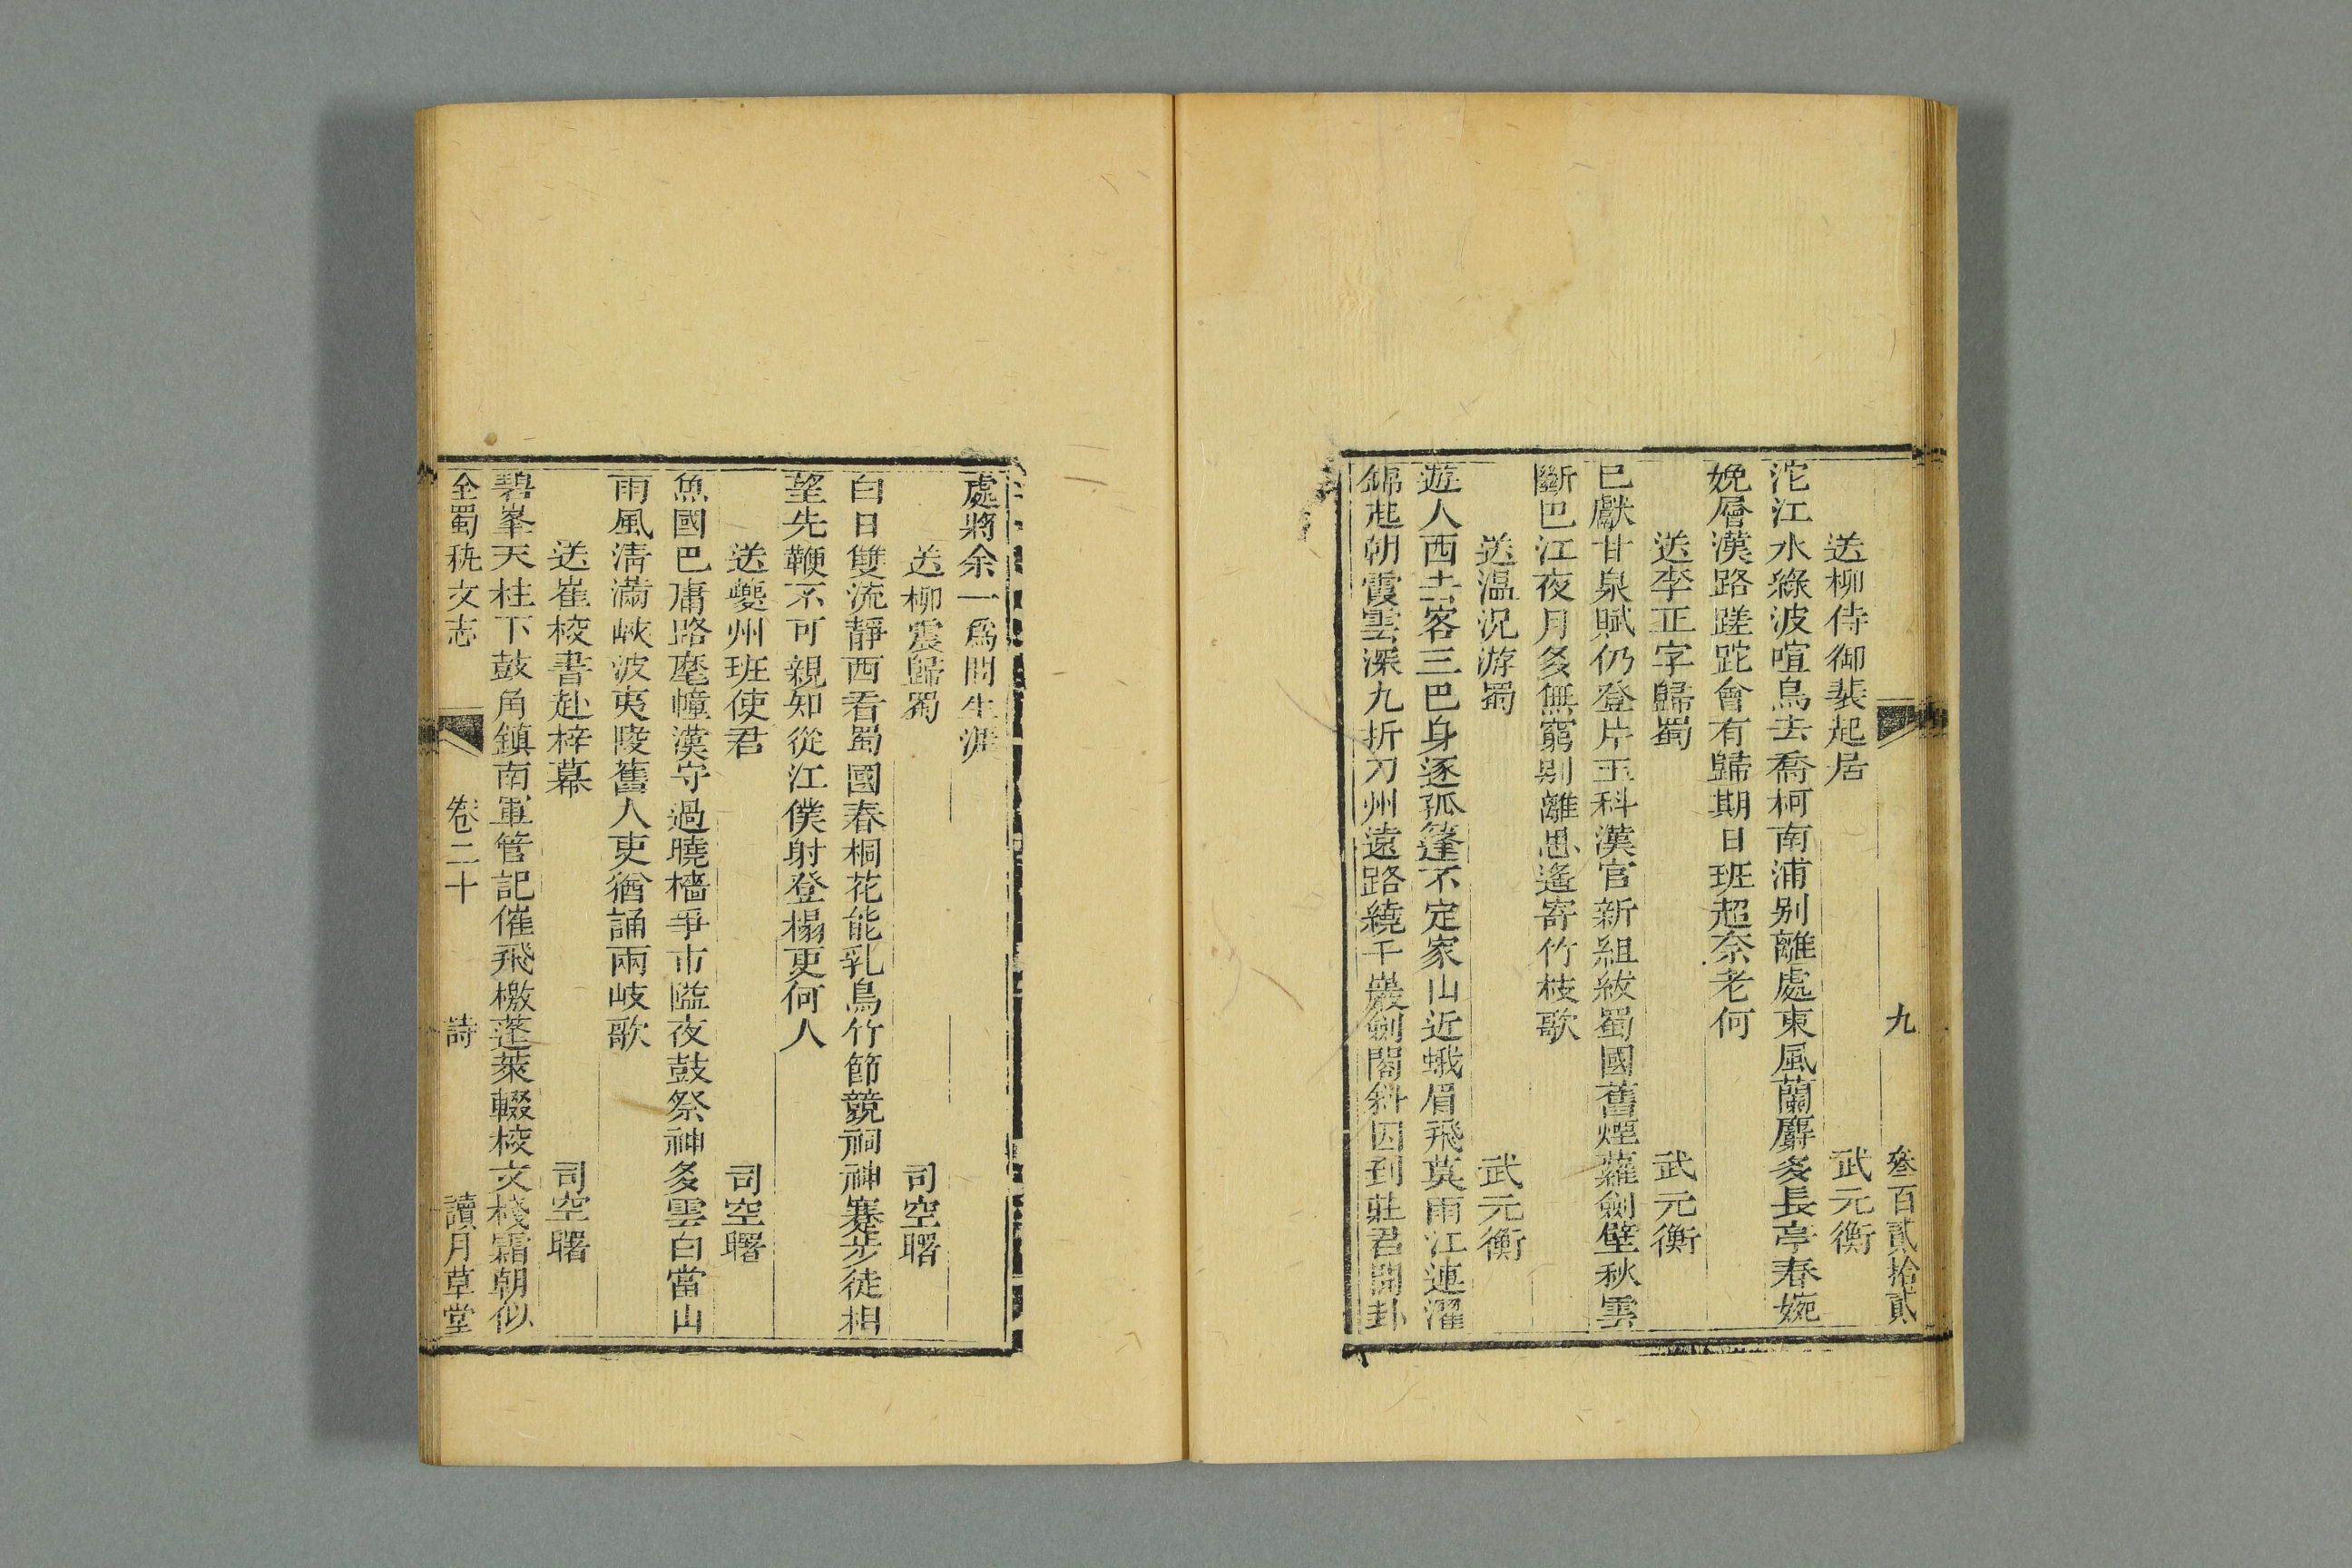 九 叅百貳拾貳
送柳侍御裴起居 武元衡
沱江水綠波喧鳥去喬柯南浦别離處東風蘭麝多長亭春婉
娩層漢路蹉跎會有歸期日班超奈老何
送李正字歸蜀 武元衡
已獻甘泉賦仍登片玉科漢官新組紱蜀國舊煙蘿劍壁秋雲
斷巴江夜月多無窮别離思遙寄竹枝歌
送溫況游蜀 武元衡
遊人西去客三巴身逐孤篷不定家山近峨眉飛莫雨江連濯
錦起朝霞雲深九折刀州遠路繞千巖劍閣斜因到莊君開卦
處將余一爲問生涯
送柳震歸蜀 司空曙
白日雙流靜西看蜀國春桐花能乳鳥竹節競祠神蹇步徒相
望先鞭不可親知從江僕射登榻更何人
送夔州班使君 司空曙
魚國巴庸路麾幢漢守過曉檣爭市隘夜鼓祭神多雲白當山
雨風清滿峽波夷陵舊人吏猶誦兩岐歌
送崔校書赴梓幕 司空曙
碧峯天柱下鼓角鎮南軍管記催飛檄蓬萊輟校文棧霜朝似
全蜀秇文志 卷二十 詩 讀月草堂